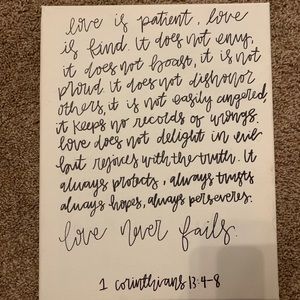 love is patient, love
is kind. It does not envy,
it does not boast, it is not
proud. It does not dishonor
others, it is not easily angered,
it keeps no records of wrongs.
love does not delight in evil
but rejoices with the truth. It
always protects, always trusts
always hopes, always perseveres.
love never fails.
1 corinthians 13:4-8